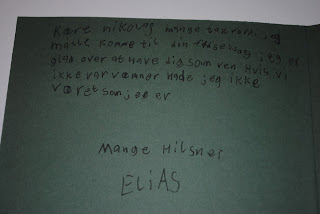 Kære nikolaj mange tak fordi jeg
måtte komme til din fødselsdag jeg er
glad over at have dig som ven Hvis vi
ikke var venner hade jeg ikke
været som jeg er
Mange Hilsner
ELiAS